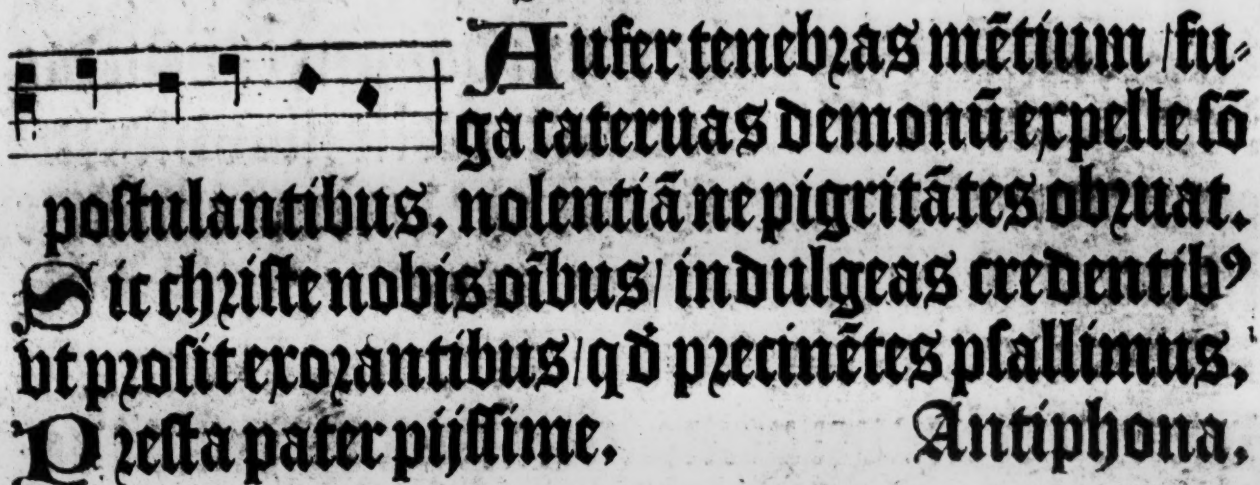 Aufer tenebras mētium / fu⸗
ga cateruas demonū expelle sō
postulantibus. nolentiā ne pigritātes obruat.
Sic christe nobis oībus / indulgeas credentibꝰ
vt prosit exorantibus / qd̄ precinētes psallimus.
Presta pater pijssime. Antiphona.